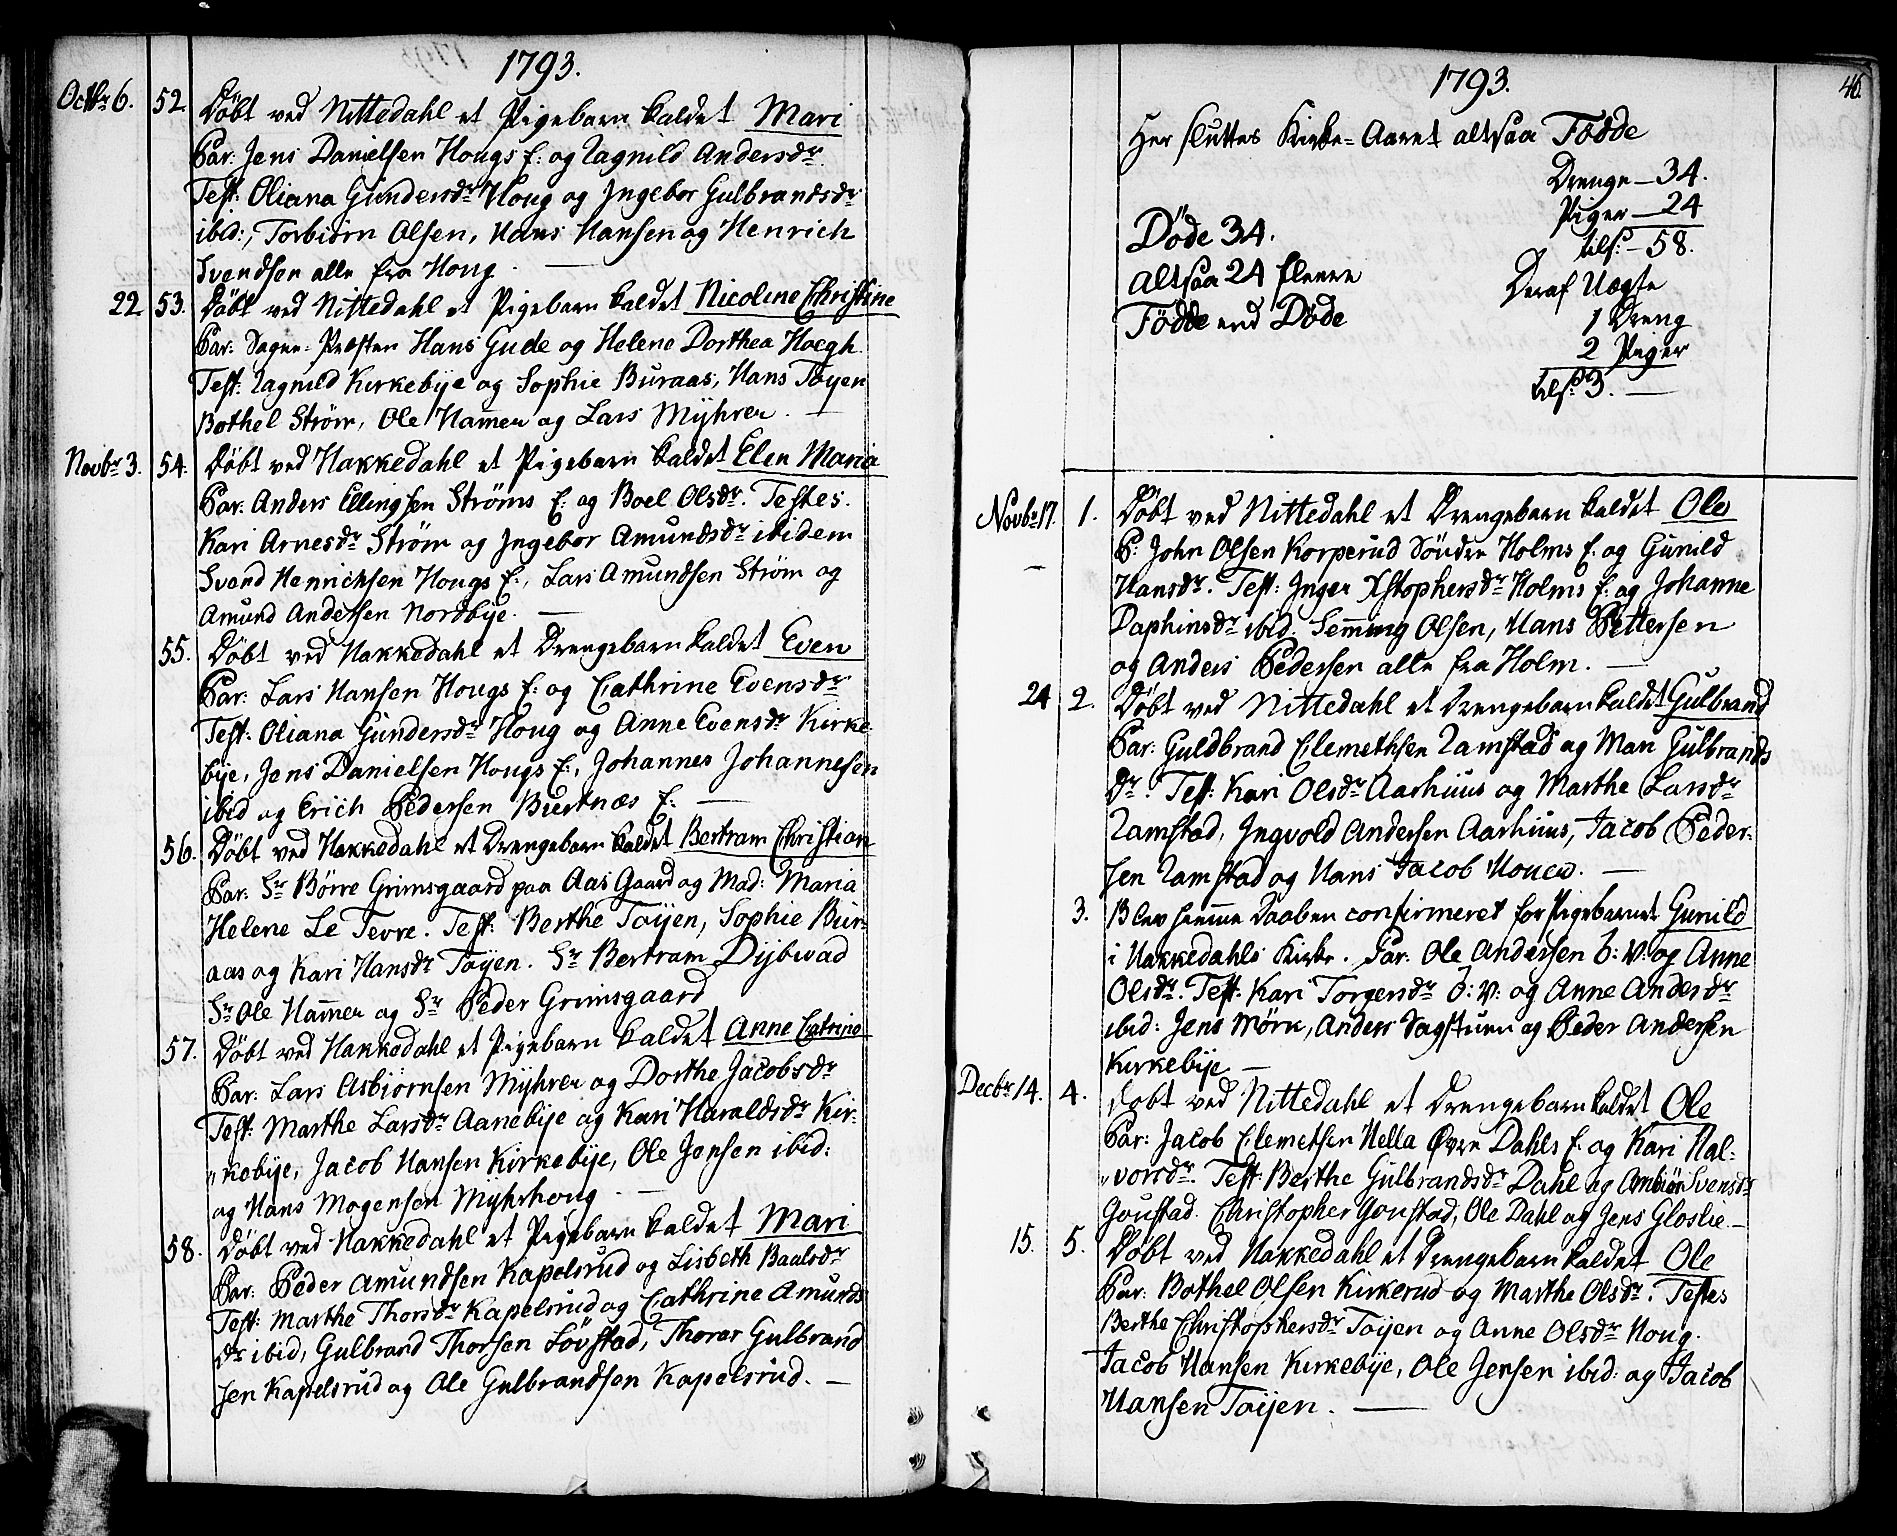 1793.
Octbr 6. 52. Döbt ved Nittedahl et Pigebarn kaldet Mari
Par: Jens Danielsen Hougs E: og Ragnild Andersdr
Test: Oliana Gundersdr Houg og Ingebor Gulbrandsdr
ibid:, Torbiörn Olsen, Hans Hansen og Henrich
Svendsen alle fra Houg. —
22 53. Döbt ved Nittedahl et Pigebarn kaldet Nicoline Christine
Par: Sogne-Præsten Hans Gude og Helene Dorthea Hoegh.
Test: Ragnild Kirkebÿe og Sophie Buraas, Hans Tøyen
Bothel Ström, Ole Hamer og Lars Mÿhrer. —
Novbr 3. 54. Döbt ved Hakkedahl et Pigebarn kaldet Elen Maria
Par: Anders Ellingsen Ströms E: og Boel Olsdr. Testes.
Kari Arnesdr Ström og Ingebor Amundsdr ibidem
Svend Henrichsen Hougs E:, Lars Amundsen Ström og
Amund Andersen Nordbye. —
55. Döbt ved Hakkedahl et Drengebarn kaldet Even
Par: Lars Hansen Hougs E: og Cathrine Evensdr
Test: Oliana Gundersdr Houg og Anne Evensdr Kirke
bÿe, Jens Danielsen Hougs E:, Johannes Johannesen
ibid og Erich Pedersen Burtnæs E: —
56. Döbt ved Hakkedahl et Drengebarn kaldet Bertram Christian
Par: Sr Börre Grimsgaard paa Aas Gaard og Mad: Maria
Helene Le Tevre. Test: Berthe Toÿen, Sophie Bur-
aas og Kari Hansdr Toyen. Sr Bertram Dÿbwad
Sr Ole Hamer og Sr Peder Grimsgaard
57. Döbt ved Hakkedahl et Pigebarn kaldet Anne Catrine
Par: Lars Asbiörnsen Mÿhrer og Dorthe Jacobsdr
Test: Marthe Larsdr Aanebÿe og Kari Haraldsdr Kir-
„kebÿe, Jacob Hansen Kirkebÿe, Ole Jensen ibid:
og Hans Mogensen Mÿhrhoug. —
58. Döbt ved Hakkedahl et Pigebarn kaldet Mari
Par: Peder Amundsen Kapelsrud og Lisbeth Baalsdr
Test: Marthe Thorsdr Kapelsrud og Cathrine Amunds
dr ibid, Gulbrand Thorsen Lövstad, Thorer Gulbrand
sen Kapelsrud og Ole Gulbrandsen Kapelsrud. —
1793.
46.
Her sluttes Kirke-Aaret altsaa Fødde
Drenge — 34.
Piger — 24
tils: — 58.
Döde 34.
altsaa 24 fleere
Födde end Døde
Deraf Uægte
1 Dreng
2 Piger
tils: 3. —
Novbr 17. 1. Döbt ved Nittedahl et Drengebarn kaldet Ole
P: John Olsen Korperud Söndre Holms E: og Gunild
Hansdr. Test: Inger Xstophersdr Holms E: og Johanne
Daphinsdr ibid. Seming Olsen, Hans Pettersen
og Anders Pedersen alle fra Holm. —
24 2. Döbt ved Nittedahl et Drengebarn kaldet Gulbrand
Par: Guldbrand Clemethsen Ramstad og Mari Gulbrands
dr. Test: Kari Olsdr Aarhuus og Marthe Larsdr
Ramstad, Ingvold Andersen Aarhuus, Jacob Peder-
sen Ramstad og Hans Jacob Houer. —
3. Blev hiemme Daaben confirmeret for Pigebarnet Gunild
i Hakkedahls Kirke. Par: Ole Andersen Ö: V: og Anne
Olsdr. Test: Kari Torgersdr Ö: V: og Anne Andersdr
ibid: Jens Mörk, Anders Sagstuen og Peder Andersen
Kirkebÿe —
Decbr 14. 4. Döbt ved Nittedahl et Drengebarn kaldet Ole
Par: Jacob Clemetsen Hella Øvre Dahls E: og Kari Hal-
„vorsdr. Test: Berthe Gulbrandsdr Dahl og Svensdr
Goustad. Christopher Goustad, Ole Dahl og Jens Gloslie —
15. 5. Döbt ved Hakkedahl et Drengebarn kaldet Ole
Par: Bothel Olsen Kirkerud og Marthe Olsdr. Testes
Berthe Christophersdr Toÿen og Anne Olsdr Houg.
Jacob Hansen Kirkebÿe, Ole Jensen ibid: og Jacob
Hansen Toÿen. —